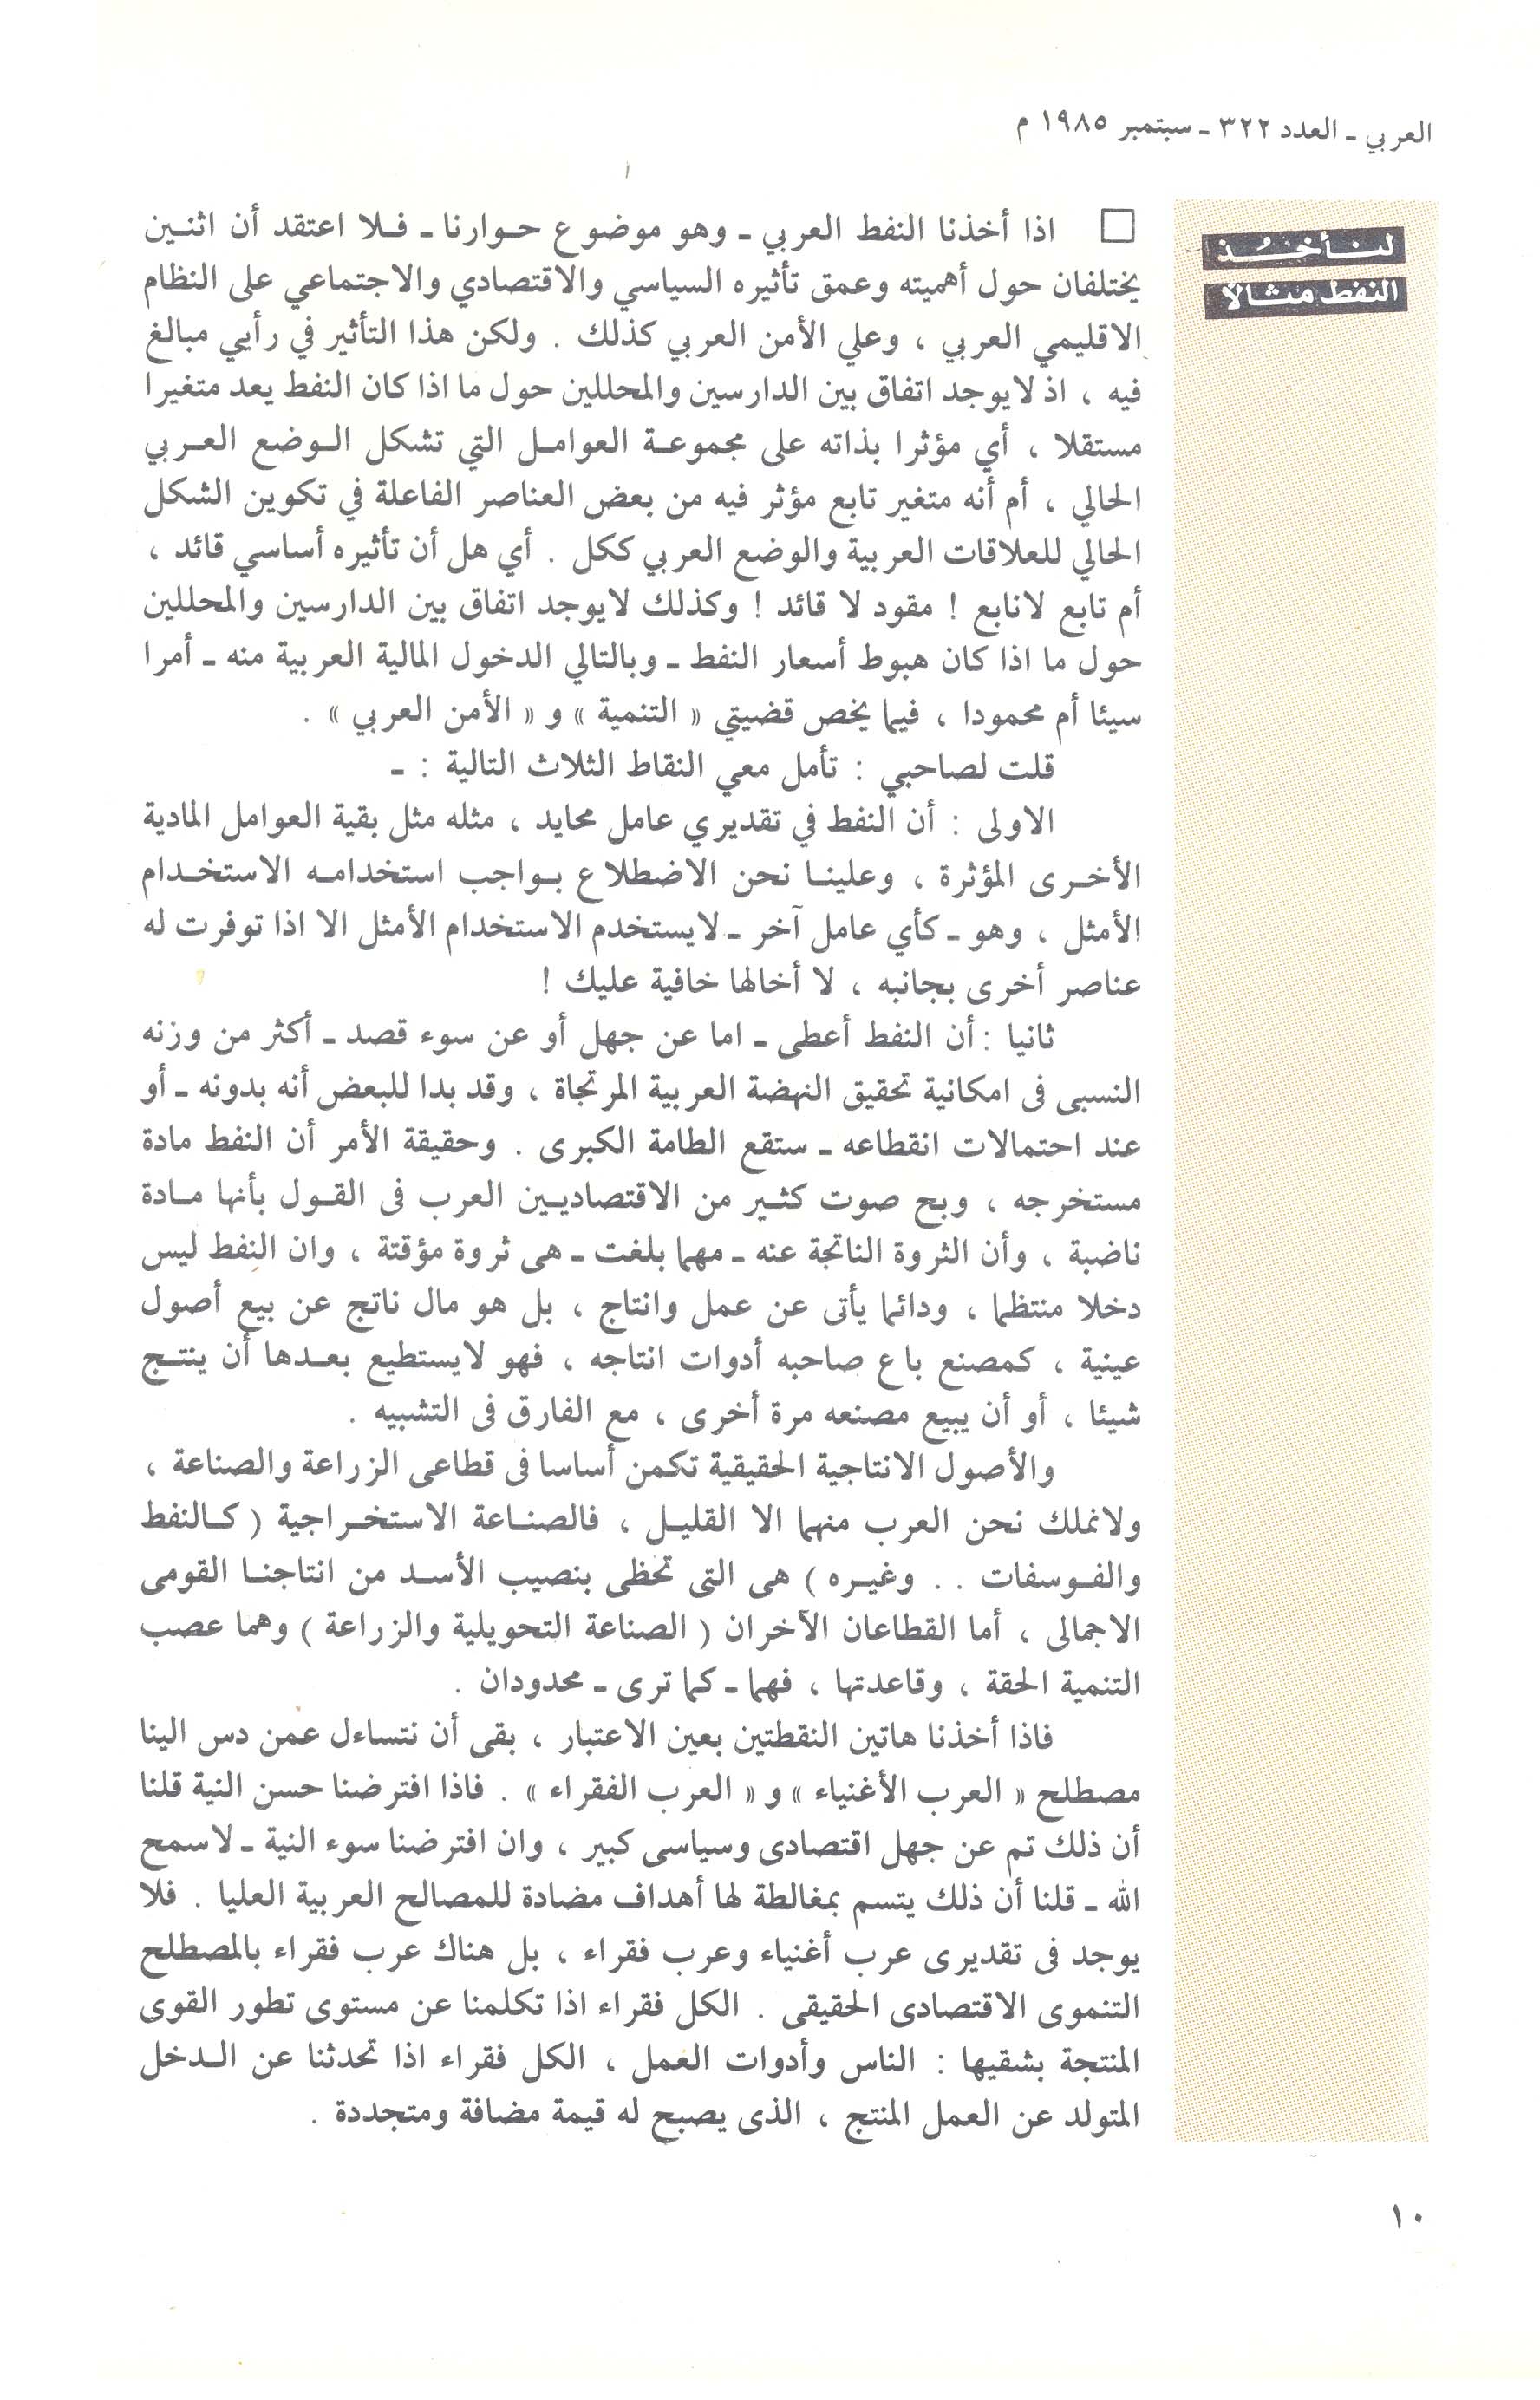 العربي - العدد ٣٢٢ - سبتمبر ١٩٨٥ م
لنأخذ
النفط مثالا
□ اذا أخذنا النفط العربي - وهو موضوع حوارنا - فلا اعتقد أن اثنين
يختلفان حول أهميته وعمق تأثيره السياسي والاقتصادي والاجتماعي على النظام
الاقليمي العربي ، وعلي الأمن العربي كذلك . ولكن هذا التأثير في رأيي مبالغ
فيه ، اذ لايوجد اتفاق بين الدارسين والمحللين حول ما اذا كان النفط يعد متغيرا
مستقلا ، أي مؤثرا بذاته على مجموعة العوامل التي تشكل الوضع العربي
الحالي ، أم أنه متغير تابع مؤثر فيه من بعض العناصر الفاعلة في تكوين الشكل
الحالي للعلاقات العربية والوضع العربي ككل . أي هل أن تأثيره أساسي قائد ،
أم تابع لانابع ! مقود لا قائد ! وكذلك لايوجد اتفاق بين الدارسين والمحللين
حول ما اذا كان هبوط أسعار النفط - وبالتالي الدخول المالية العربية منه - أمرا
سيئا أم محمودا ، فيما يخص قضيتي « التنمية » و « الأمن العربي » .
قلت لصاحبي : تأمل معي النقاط الثلاث التالية : -
الاولى : أن النفط في تقديري عامل محايد ، مثله مثل بقية العوامل المادية
الأخرى المؤثرة ، وعلينا نحن الاضطلاع بواجب استخدامه الاستخدام
الأمثل ، وهو - كأي عامل آخر - لايستخدم الاستخدام الأمثل الا اذا توفرت له
عناصر أخرى بجانبه ، لا أخالها خافية عليك !
ثانيا : أن النفط أعطى - اما عن جهل أو عن سوء قصد - أكثر من وزنه
النسبى فى امكانية تحقيق النهضة العربية المرتجاة ، وقد بدا للبعض أنه بدونه - أو
عند احتمالات انقطاعه - ستقع الطامة الكبرى . وحقيقة الأمر أن النفط مادة
مستخرجه ، وبح صوت كثير من الاقتصاديين العرب فى القول بأنها مادة
ناضبة ، وأن الثروة الناتجة عنه - مهما بلغت - هى ثروة مؤقتة ، وان النفط ليس
دخلا منتظما ، ودائما يأتى عن عمل وانتاج ، بل هو مال ناتج عن بيع أصول
عينية ، كمصنع باع صاحبه أدوات انتاجه ، فهو لايستطيع بعدها أن ينتج
شيئا ، أو أن يبيع مصنعه مرة أخرى ، مع الفارق فى التشبيه .
والأصول الانتاجية الحقيقية تكمن أساسا فى قطاعى الزراعة والصناعة ،
ولانملك نحن العرب منهما الا القليل ، فالصناعة الاستخراجية ( كالنفط
والفوسفات . . وغيره ) هى التى تحظى بنصيب الأسد من انتاجنا القومى
الاجمالى ، أما القطاعان الآخران ( الصناعة التحويلية والزراعة ) وهما عصب
التنمية الحقة ، وقاعدتها ، فهما - كما ترى - محدودان .
فاذا أخذنا هاتين النقطتين بعين الاعتبار ، بقى أن نتساءل عمن دس الينا
مصطلح « العرب الأغنياء » و « العرب الفقراء » . فاذا افترضنا حسن النية قلنا
أن ذلك تم عن جهل اقتصادى وسياسى كبير ، وان افترضنا سوء النية - لاسمح
الله - قلنا أن ذلك يتسم بمغالطة لها أهداف مضادة للمصالح العربية العليا . فلا
يوجد فى تقديرى عرب أغنياء وعرب فقراء ، بل هناك عرب فقراء بالمصطلح
التنموى الاقتصادى الحقيقى . الكل فقراء اذا تكلمنا عن مستوى تطور القوى
المنتجة بشقيها : الناس وأدوات العمل ، الكل فقراء اذا تحدثنا عن الدخل
المتولد عن العمل المنتج ، الذى يصبح له قيمة مضافة ومتجددة .
١٠